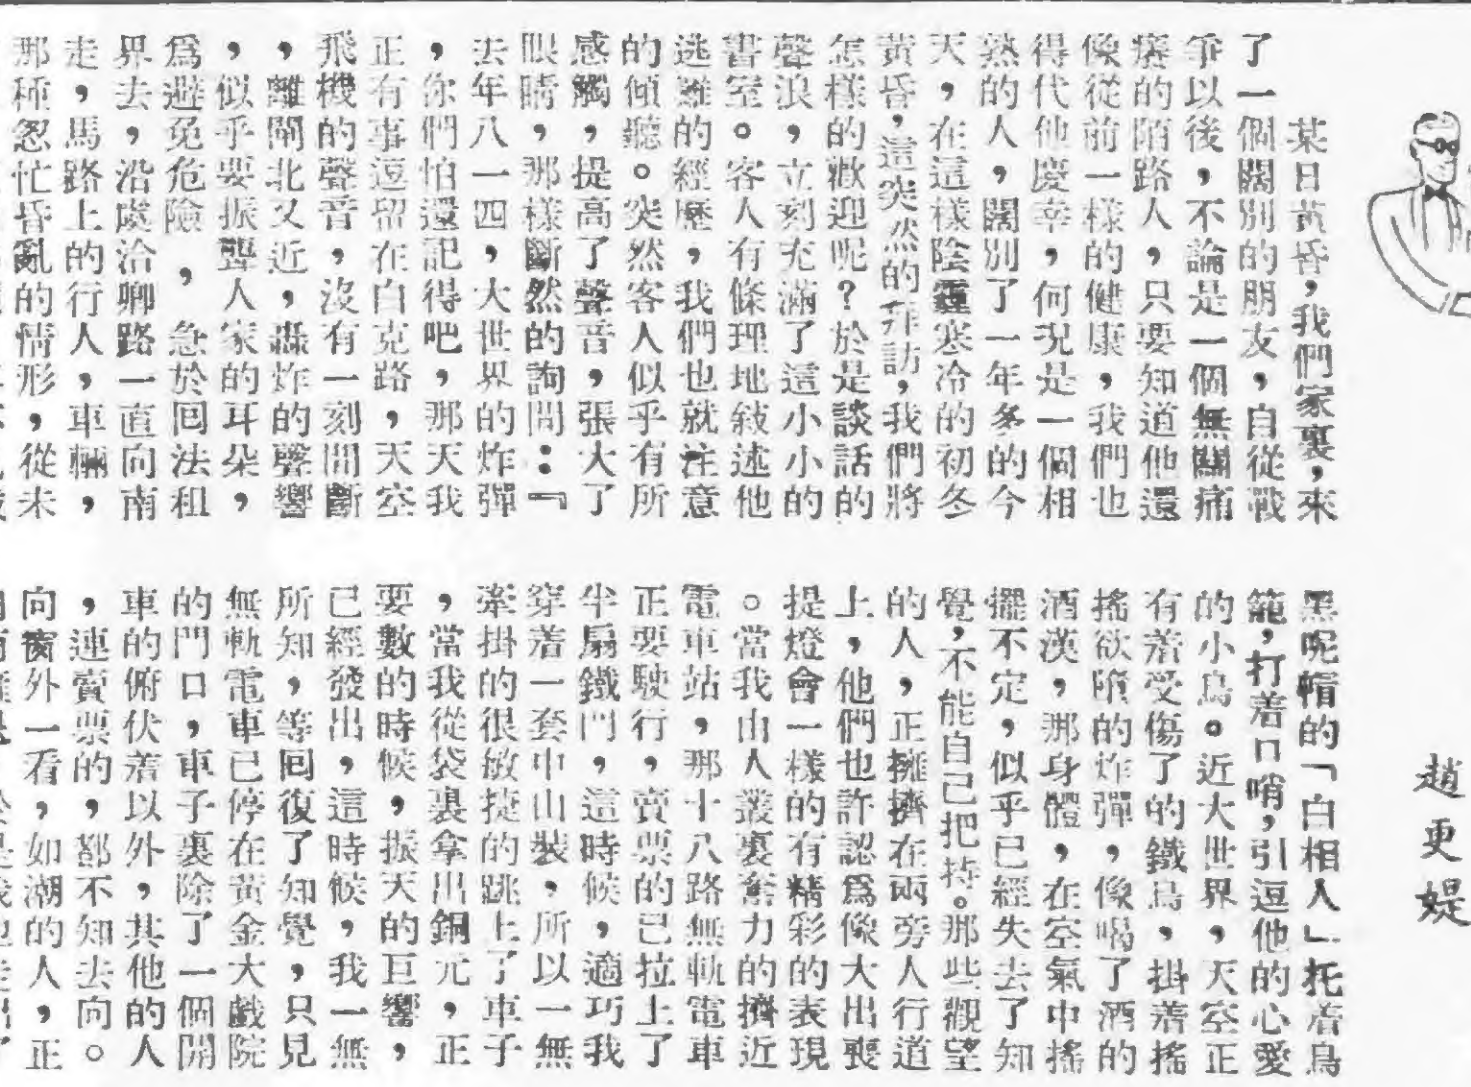 趙更媞
某日黃昏，我們家裏，來
了一個闊別的朋友，自從戰
爭以後，不論是一個無關痛
癢的陌路人，只要知道他還
像從前一樣的健康，我們也
得代他慶幸，何況是一個相
熟的人，闊別了一年多的今
天，在這樣陰霾寒冷的初冬
黃昏，這突然的拜訪，我們將
怎樣的歡迎呢？於是談話的
聲浪，立刻充滿了這小小的
書室。客人有條理地敍述他
逃難的經歷，我們也就注意
的傾聽。突然客人似乎有所
感觸，提高了聲音，張大了
眼睛，那樣斷然的詢問：『
去年八一四，大世界的炸彈
，你們怕還記得吧，那天我
正有事逗留在白克路，天空
飛機的聲音，沒有一刻間斷
，離閘北又近，轟炸的聲響
，似乎要振聾人家的耳朵，
爲避免危險，急於回法租
界去，沿處洽卿路一直向南
走，馬路上的行人，車輛，
那種忽忙昏亂的情形，從未
黑呢帽的「白相人」托着鳥
籠，打着口哨，引逗他的心愛
的小鳥。近大世界，天空正
有着受傷了的鐵鳥，掛着搖
搖欲墮的炸彈，像喝了酒的
酒漢，那身體，在空氣中搖
擺不定，似乎已經失去了知
覺，不能自己把持。那些觀望
的人，正擁擠在兩旁人行道
上，他們也許認爲像大出喪
提燈會一樣的有精彩的表現
。當我由人叢裏奮力的擠近
電車站，那十八路無軌電車
正要駛行，賣票的已拉上了
半扇鐵門，這時候，適巧我
穿着一套中山裝，所以一無
牽掛的很敏捷的跳上了車子
，當我從袋裏拿出銅元，正
要數的時候，振天的巨響，
已經發出，這時候，我一無
所知，等回復了知覺，只見
無軌電車已停在黃金大戲院
的門口，車子裏除了一個開
車的俯伏着以外，其他的人
，連賣票的，都不知去向。
向窗外一看，如潮的人，正